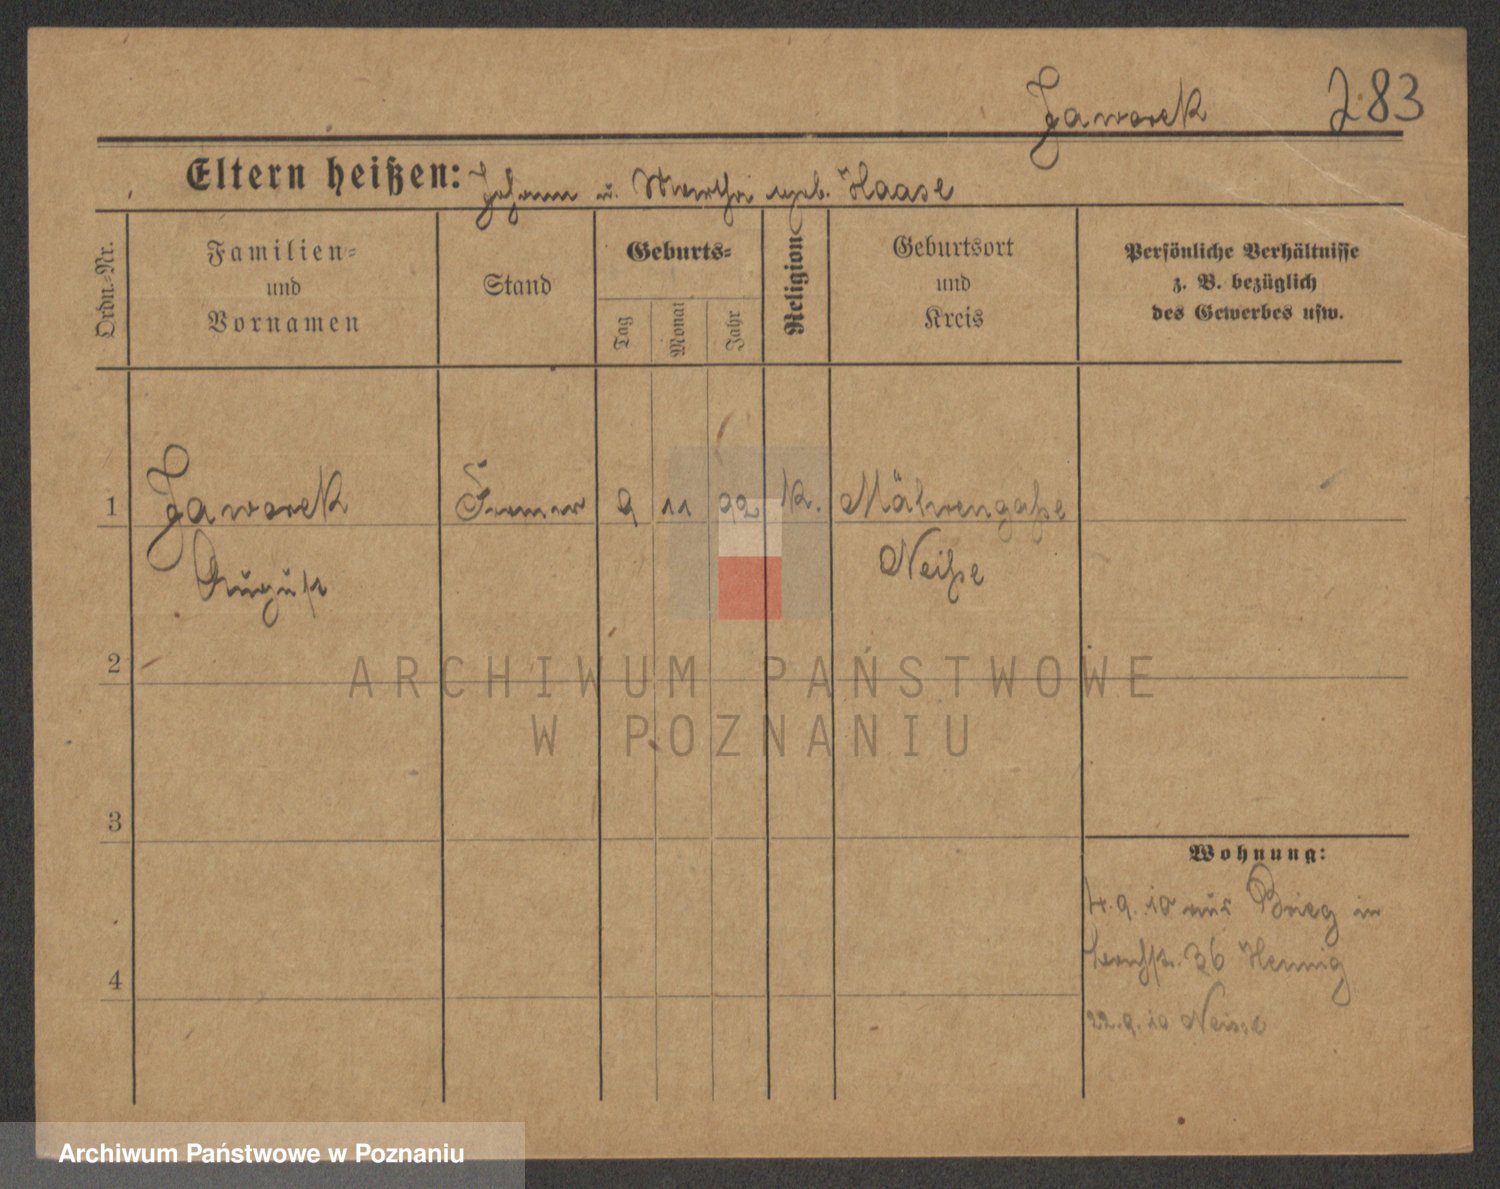 Jaworek 283
Eltern heißen: Johann u. Martha geb. Haase
Ordn.-Nr.
Familien-
und
Vornamen
Stand
Geburts-
Tag
Monat
Jahr
Religion
Geburtsort
und
Kreis
Persönliche Verhältnisse
z. B. bezüglich
des Gewerbes usw.
1 Jaworek 9 11 92 k. Mährengasse
August Neiße
2
3
4
Wohnung:
4.9.10 aus Brieg in
36 Hennig
22.9.10 Neisse
ARCHIWUM PAŃSTWOWE
W POZNANIU
Archiwum Państwowe w Poznaniu